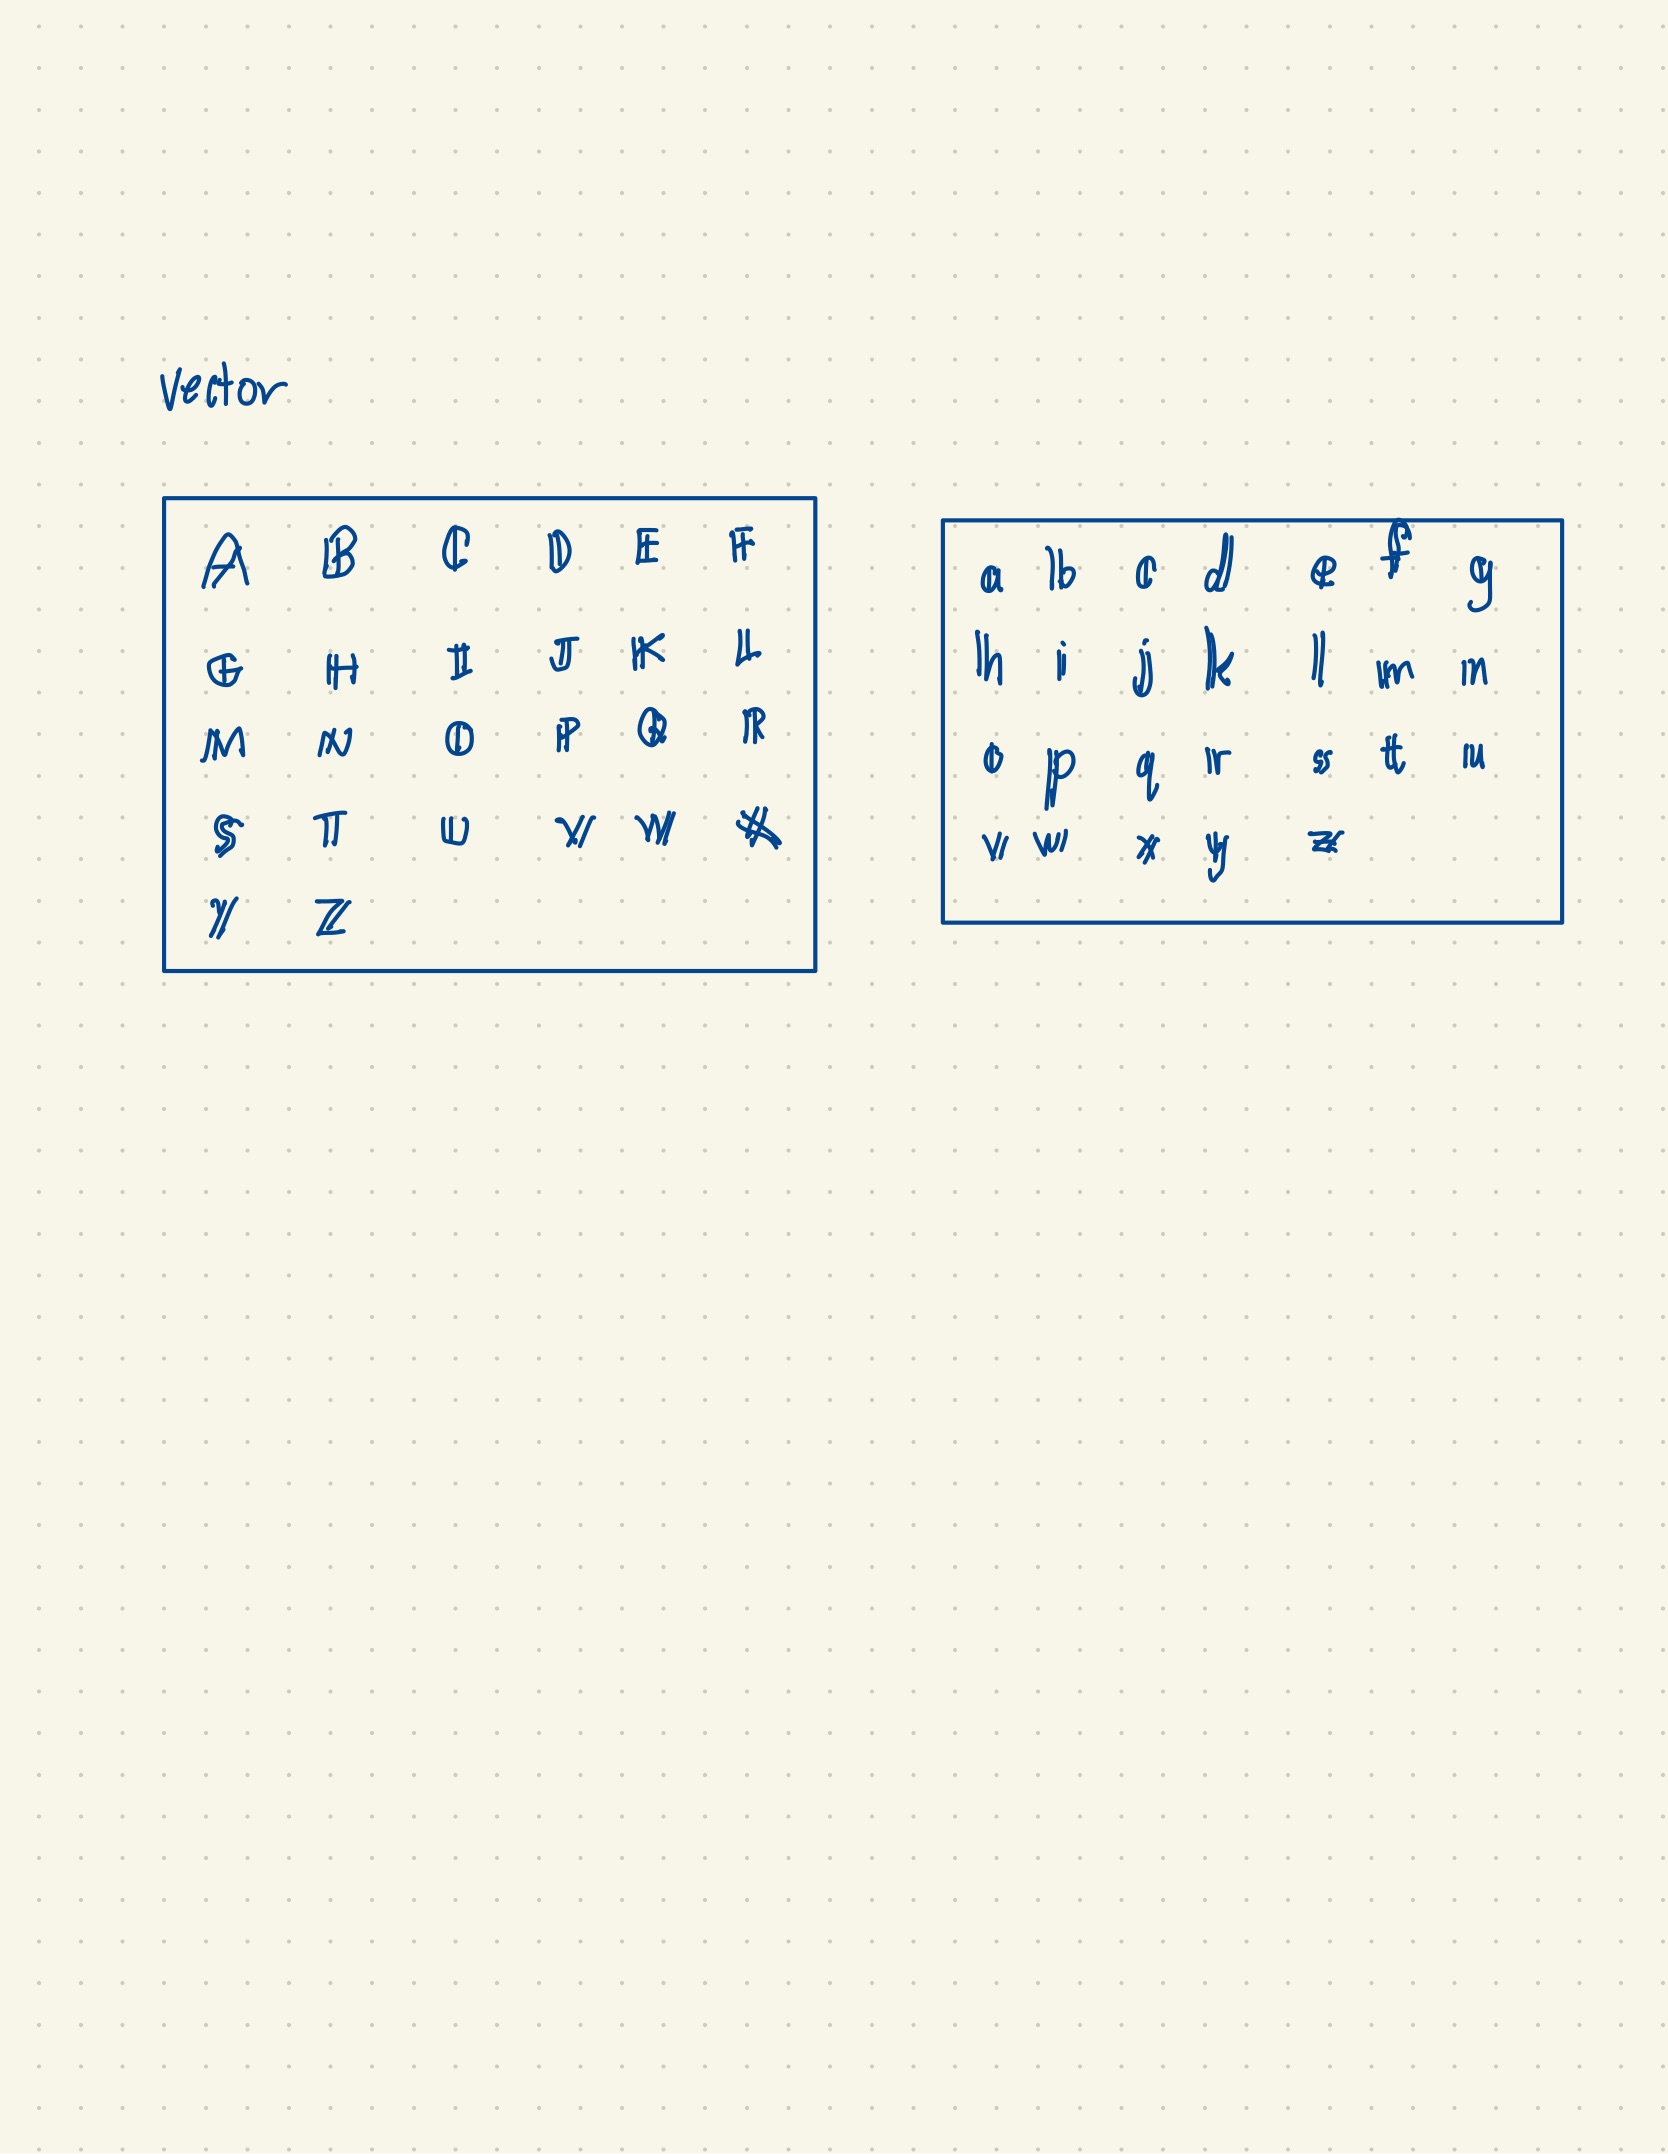 Vector
𝔸 𝔹 ℂ 𝔻 𝔼 𝔽
𝔾 ℍ 𝕀 𝕁 𝕂 𝕃
𝕄 ℕ 𝕆 ℙ ℚ ℝ
𝕊 𝕋 𝕌 𝕍 𝕎 𝕏
𝕐 ℤ
𝕒 𝕓 𝕔 𝕕 𝕖 𝕗 𝕘
𝕙 𝕚 𝕛 𝕜 𝕝 𝕞 𝕟
𝕠 𝕡 𝕢 𝕣 𝕤 𝕥 𝕦
𝕧 𝕨 𝕩 𝕪 𝕫